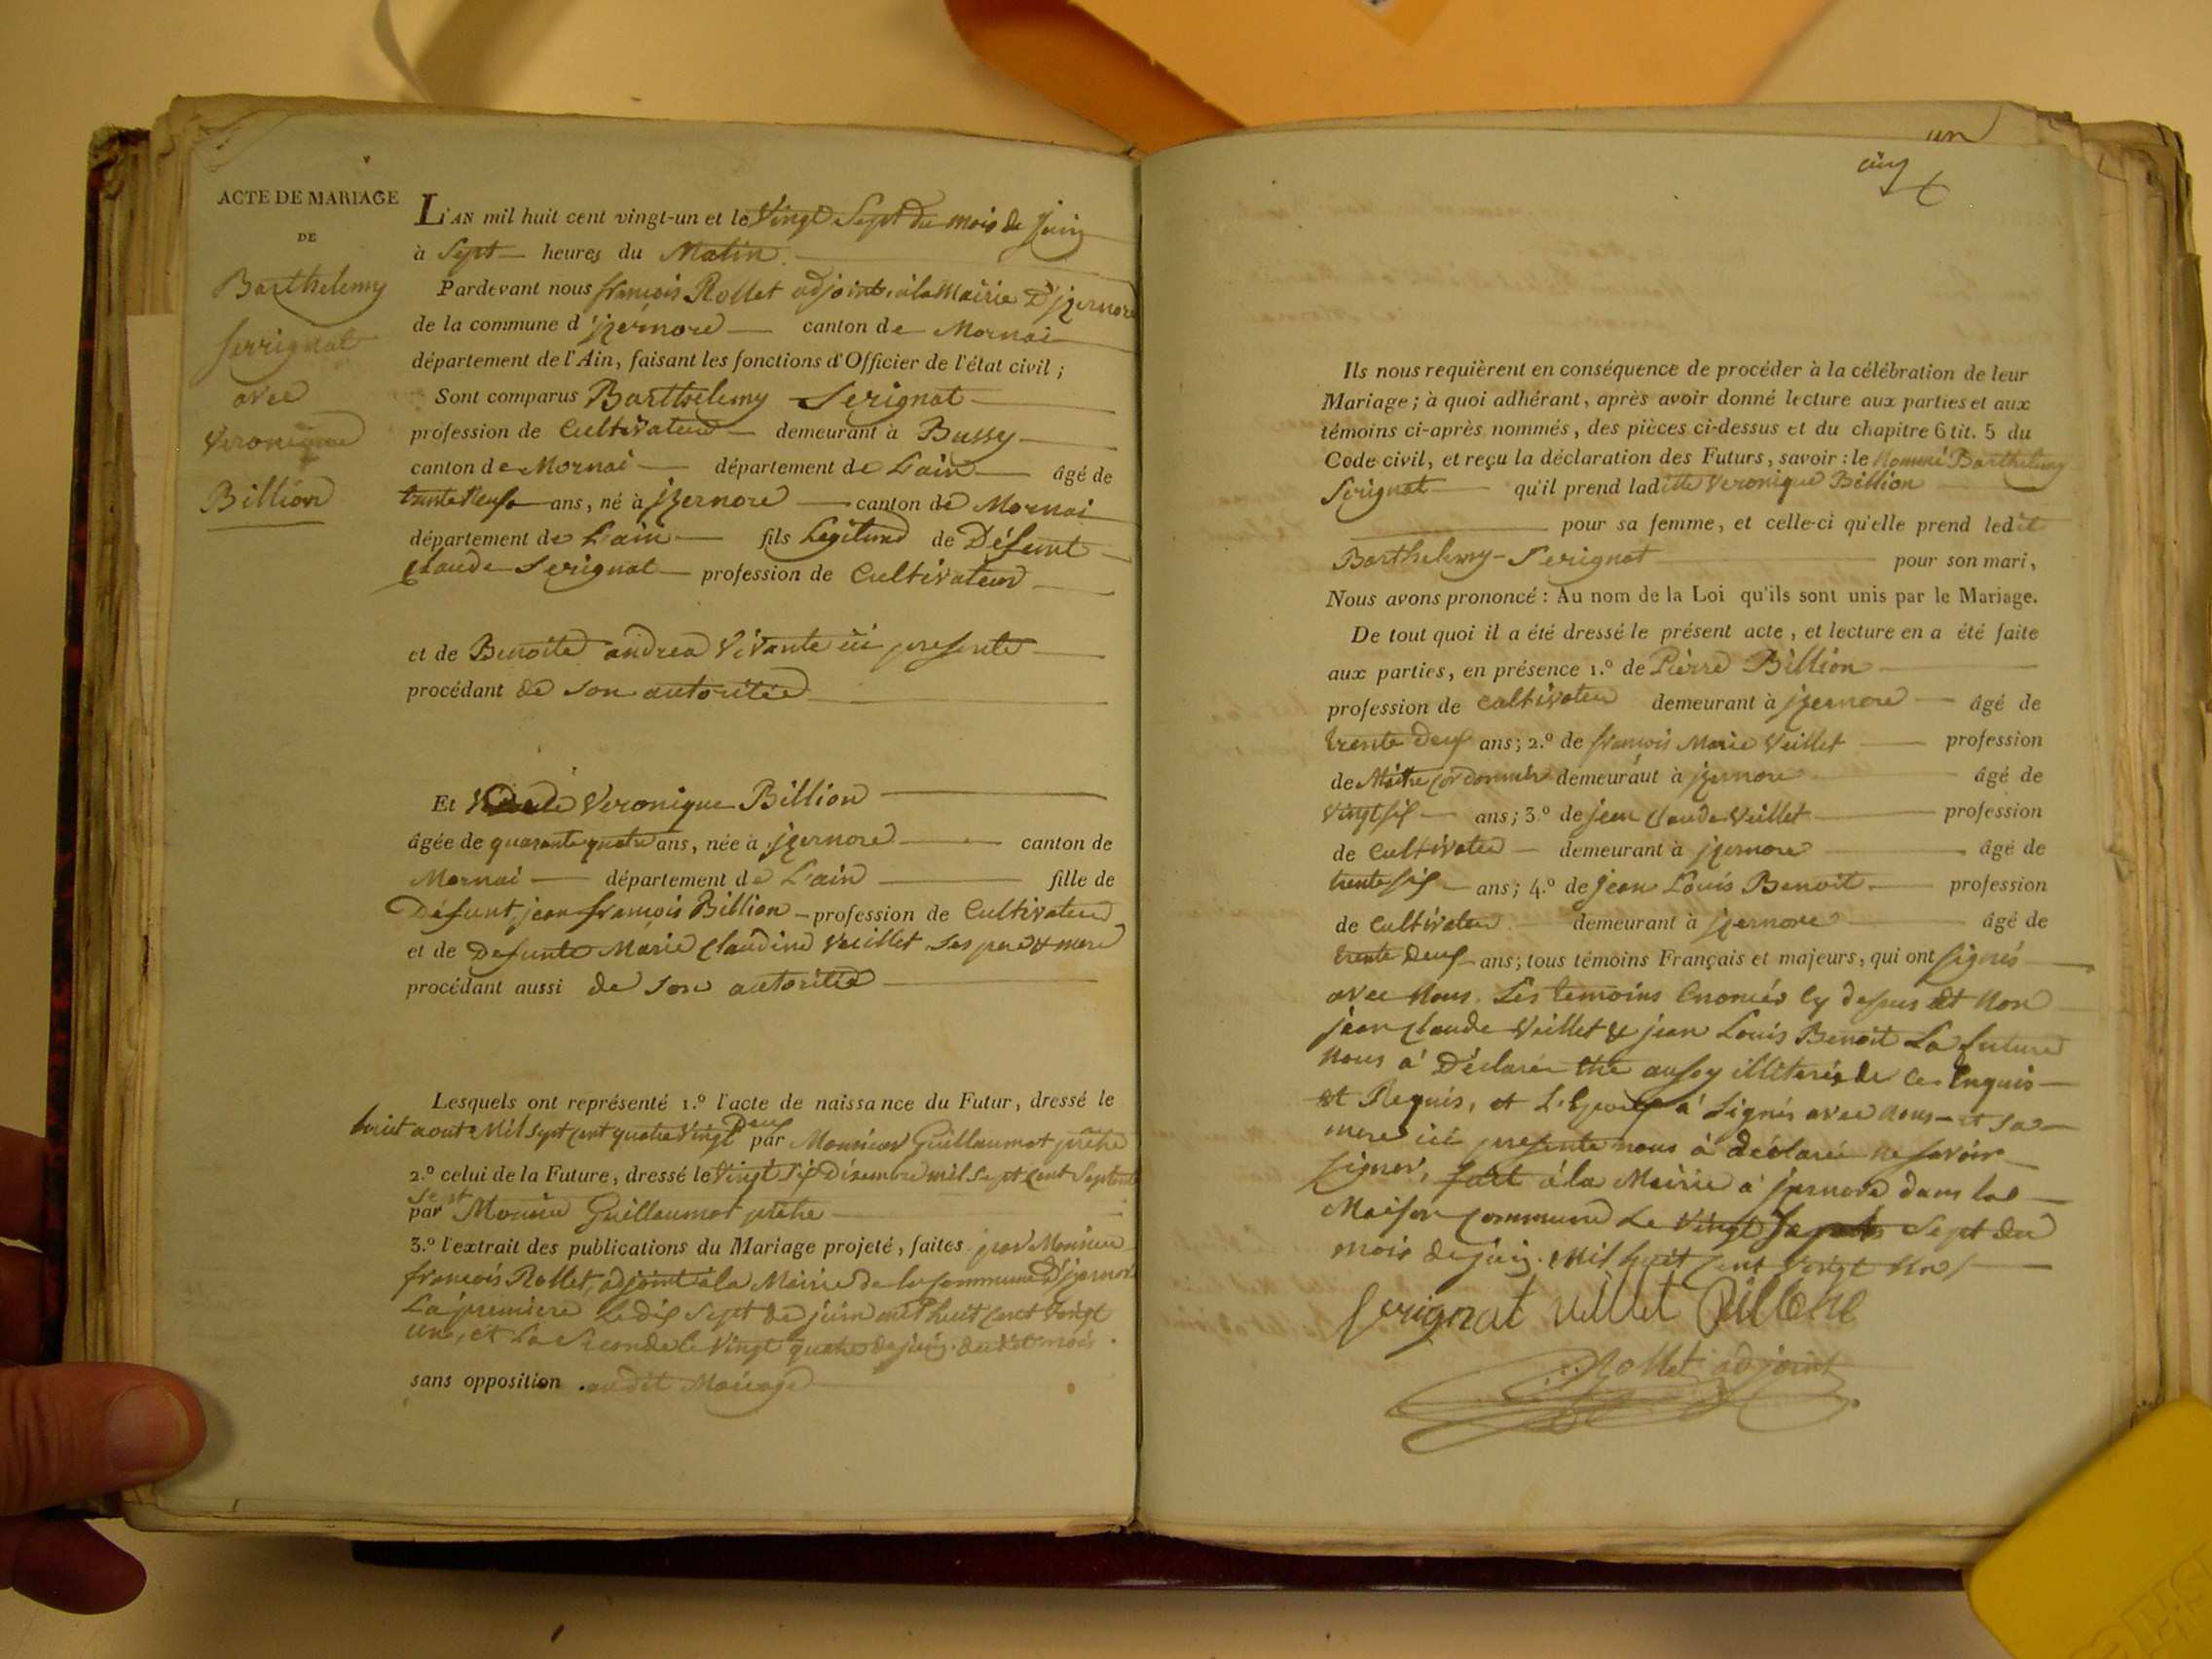 ACTE DE MARIAGE
DE
Barthelemy
Serrignat
avec
Veronique
Billion
L'AN mil huit cent vingt-un et le Vingt Sept du mois de Juin
à Sept heures du Matin.
Pardevant nous françois Rollet adjoint à la Mairie D'jzernore
de la commune d'jzernore canton de Mornai
département de l'Ain, faisant les fonctions d'Officier de l'état civil ;
Sont comparus Barthelemy Serignat
profession de Cultivateur demeurant à Bussy
canton de Mornai département de L'ain âgé de
trente Neuf ans, né à jzernore canton de Mornai
département de L'ain fils Legitime de Défunt
Claude Serignat profession de Cultivateur
et de Benoite andrea Vivante ici presente
procédant de son autoritée
Et Veronique Billion
âgée de quarante quatre ans, née à jzernore canton de
Mornai département de L'ain fille de
Défunt jean françois Billion profession de Cultivateur
et de Defunte Marie Claudine Veuillet ses pere & mere
procédant aussi de son autoritée
Lesquels ont représenté 1.º l'acte de naissance du Futur, dressé le
huit aout Mil sept cent quatre vingt Deux par Monsieur Guillaumot prêtre
2.º celui de la Future, dressé le Vingt Six Désembre mil sept cent septente
sept
par Monsieur Guillaumot prêtre
3.º l'extrait des publications du Mariage projeté, faites par Monsieur
françois Rollet, adjoint à la Mairie de la commune D'jzernore
La premiere le dix sept de juin mil huit cent vingt
un, et La Seconde le vingt quatre de juin dudit mois.
sans opposition audit Mariage
un
cinq
Ils nous requièrent en conséquence de procéder à la célébration de leur
Mariage ; à quoi adhérant, après avoir donné lecture aux parties et aux
témoins ci-après nommés, des pièces ci-dessus et du chapitre 6 tit. 5 du
Code civil, et reçu la déclaration des Futurs, savoir : le Nommé Barthelemy
Serignat qu'il prend laditte Veronique Billion
pour sa femme, et celle-ci qu'elle prend ledit
Barthelemy Serignat pour son mari,
Nous avons prononcé : Au nom de la Loi qu'ils sont unis par le Mariage.
De tout quoi il a été dressé le présent acte, et lecture en a été faite
aux parties, en présence 1.º de Pierre Billion
profession de Cultivateur demeurant à jzernore âgé de
trente Deux ans ; 2.º de françois Marie Veillet profession
de Maitre Cordonnier demeurant à jzernore âgé de
Vingt six ans ; 3.º de jean Claude Veillet profession
de Cultivateur demeurant à jzernore âgé de
trente six ans ; 4.º de Jean Louis Benoit profession
de Cultivateur demeurant à jzernore âgé de
trente Deux ans ; tous témoins Français et majeurs, qui ont signés
avec Nous. Les temoins Enoncés Cy dessus et Non
jean Claude Veillet & jean Louis Benoit La future
Nous à Déclarée aussy illiterée de ce Enquis
et Requis, et L'Epoux à Signés avec nous et sa
mere ici presente nous à déclarée ne savoir
signer, fait à la Mairie à jzernore dans la
Maison Commune Le Vingt Sept du
mois de juin. Mil huit Cent vingt Un
Serignat veillet
Rollet adjoint